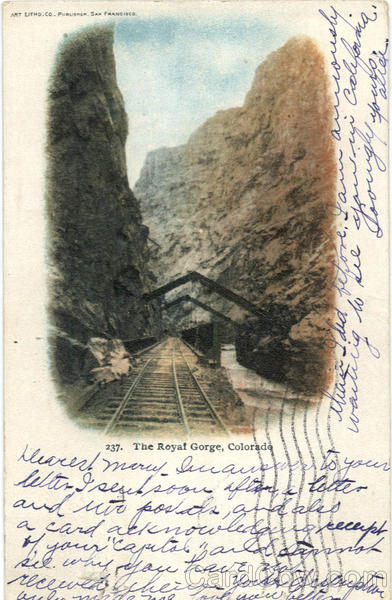 ART LITHO. CO., PUBLISHER, SAN FRANCISCO.
237. The Royal Gorge, Colorado
Dearest Mary, In answer to your
letter I sent soon after a letter
and two postals, and also
a card acknowledging receipt
of your "Capitol," and cannot
see why you have not
received
than I did before. I am anxiously
waiting to see you in Colorado.
Lovingly yours,
CardCow.com